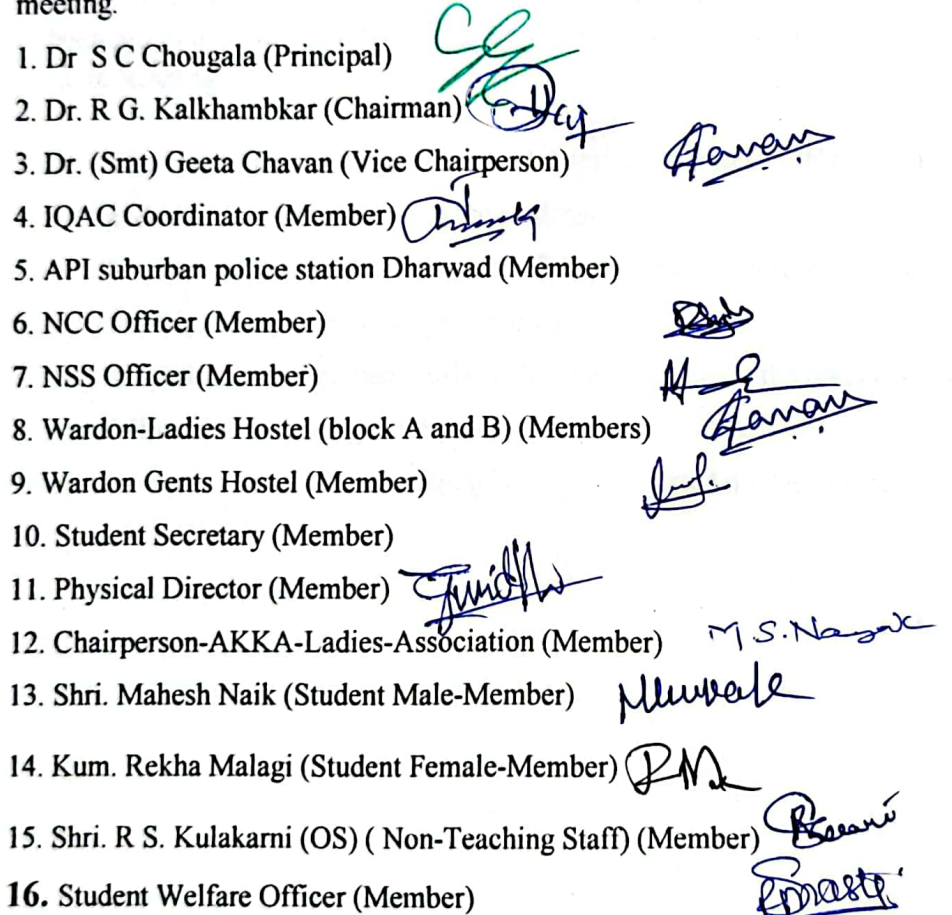 meeting.
1. Dr S C Chougala (Principal)
2. Dr. R G. Kalkhambkar (Chairman)
3. Dr. (Smt) Geeta Chavan (Vice Chairperson)
4. IQAC Coordinator (Member)
5. API suburban police station Dharwad (Member)
6. NCC Officer (Member)
7. NSS Officer (Member)
8. Wardon-Ladies Hostel (block A and B) (Members)
9. Wardon Gents Hostel (Member)
10. Student Secretary (Member)
11. Physical Director (Member)
12. Chairperson-AKKA-Ladies-Association (Member) M.S.Nayak
13. Shri. Mahesh Naik (Student Male-Member)
14. Kum. Rekha Malagi (Student Female-Member)
15. Shri. R S. Kulakarni (OS) ( Non-Teaching Staff) (Member)
16. Student Welfare Officer (Member)